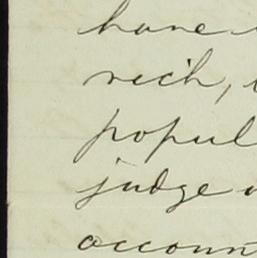 have
rich,
popul
judge
accoun